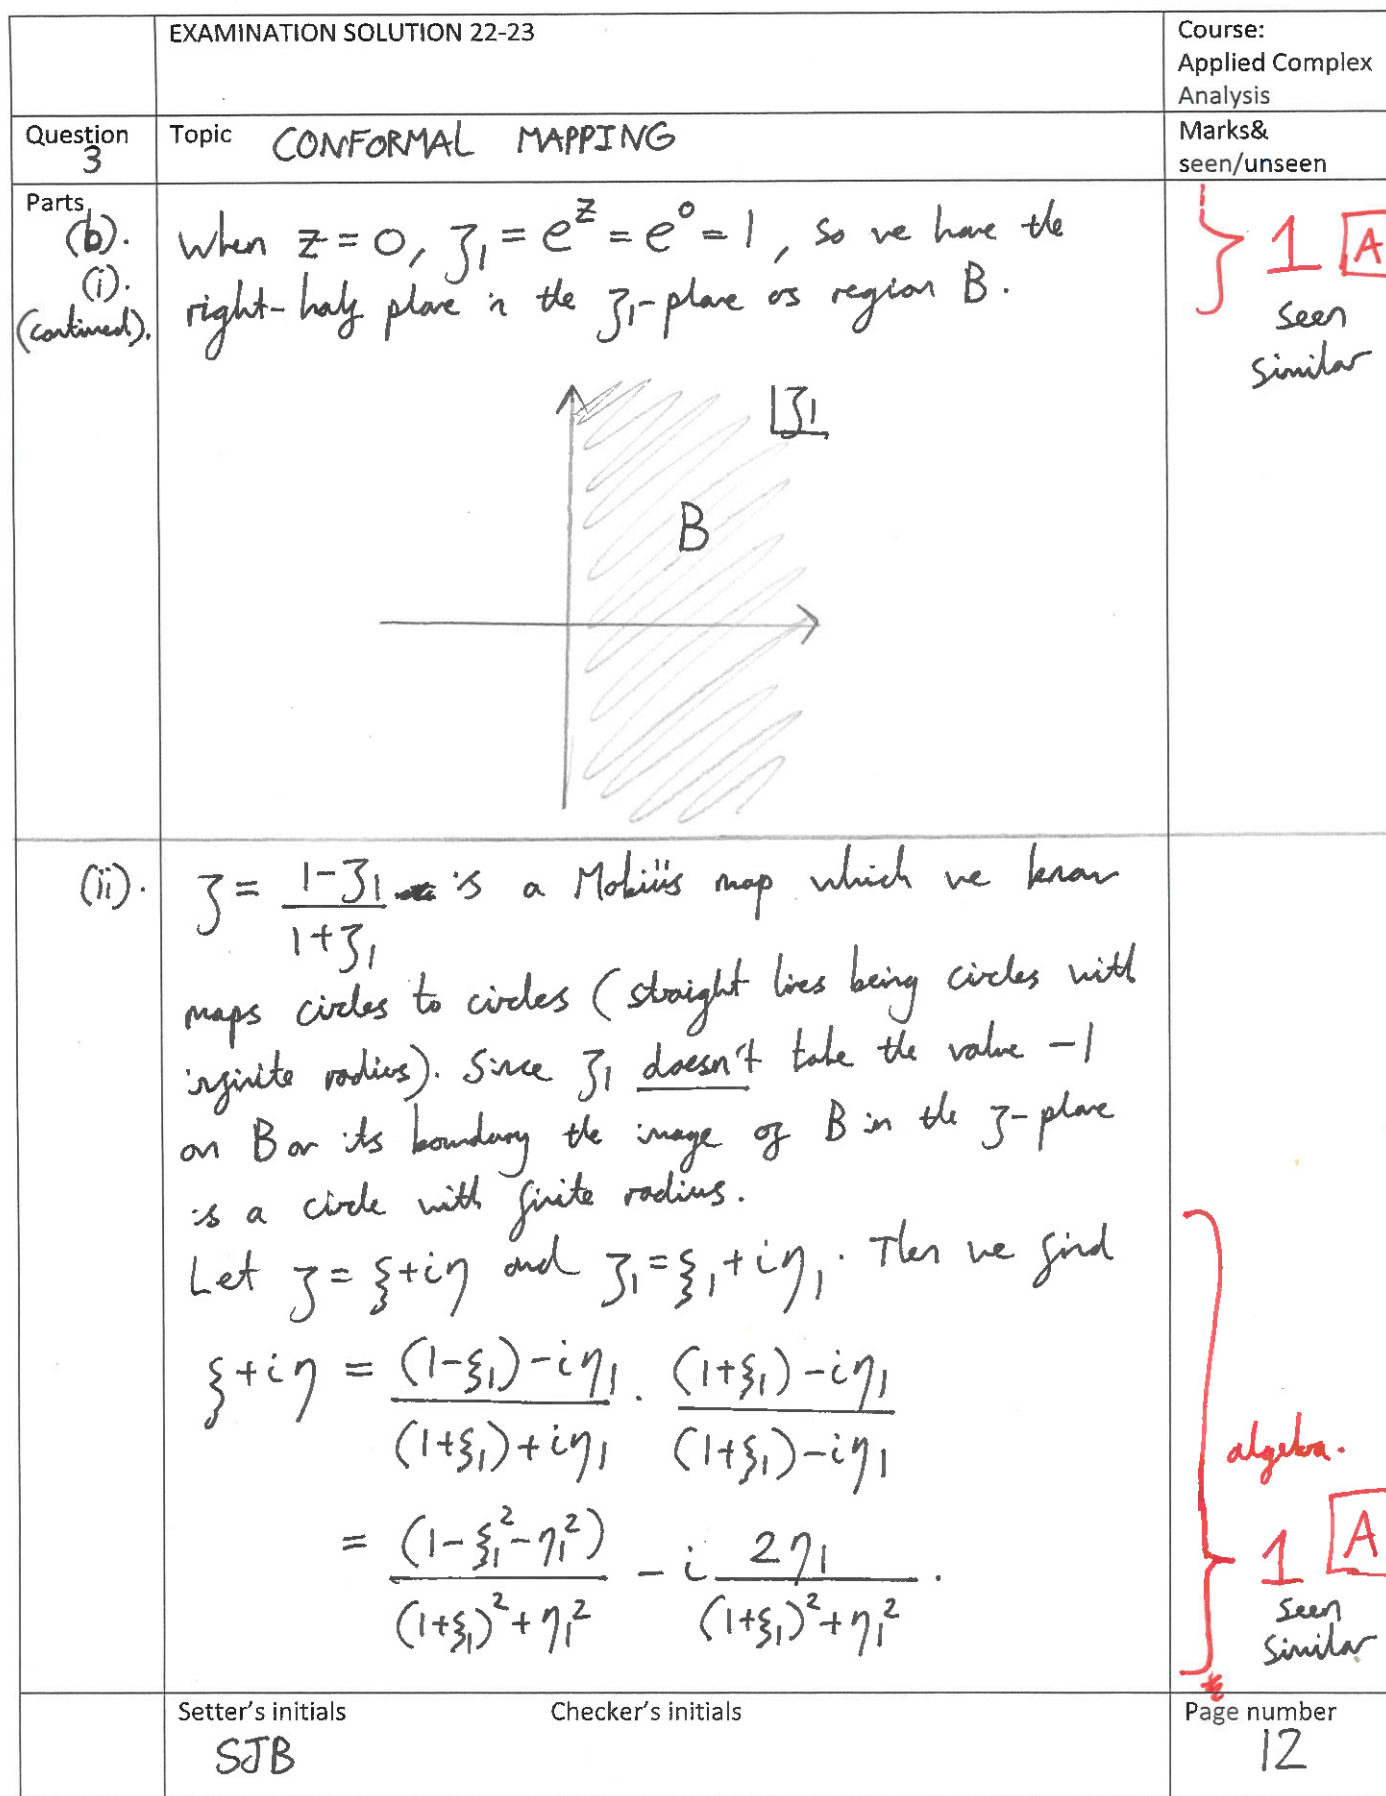 EXAMINATION SOLUTION 22-23
Course:
Applied Complex
Analysis
Question
3
Topic CONFORMAL MAPPING
Marks&
seen/unseen
Parts
(b).
(i).
(continued).
When z = 0, ζ₁ = e^z = e^0 = 1, so we have the
right-half plane in the ζ₁-plane as region B.
1 A
seen
similar
ζ₁
B
(ii).
ζ = (1-ζ₁)/(1+ζ₁) is a Mobiüs map which we know
maps circles to circles (straight lines being circles with
infinite radius). Since ζ₁ doesn't take the value -1
on B or its boundary the image of B in the ζ-plane
is a circle with finite radius.
Let ζ = ξ+iη and ζ₁ = ξ₁+iη₁. Then we find
ξ+iη = ((1-ξ₁)-iη₁)/((1+ξ₁)+iη₁) . ((1+ξ₁)-iη₁)/((1+ξ₁)-iη₁)
= (1-ξ₁²-η₁²)/((1+ξ₁)²+η₁²) - i 2η₁/((1+ξ₁)²+η₁²).
algebra.
1 A
seen
similar
Setter's initials
SJB
Checker's initials
Page number
12